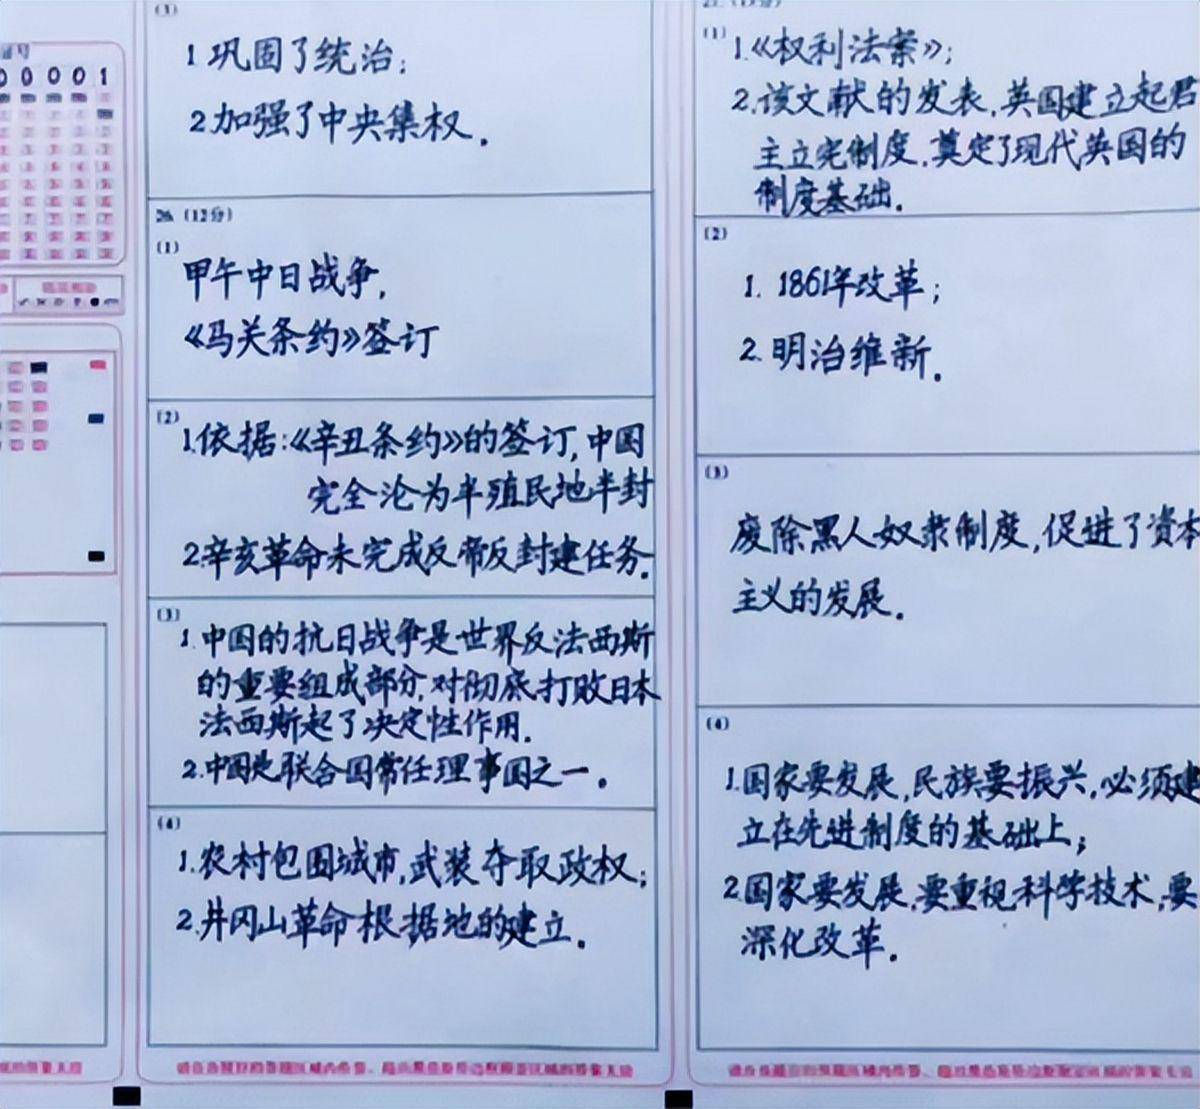 00001
(3)
1 巩固了统治;
2加强了中央集权.
26. (12分)
(1)
甲午中日战争,
《马关条约》签订
(2)
1.依据:《辛丑条约》的签订,中国
完全沦为半殖民地半封
2.辛亥革命未完成反帝反封建任务.
(3)
1.中国的抗日战争是世界反法西斯
的重要组成部分,对彻底打败日本
法西斯起了决定性作用.
2.中国是联合国常任理事国之一.
(4)
1.农村包围城市,武装夺取政权;
2.井冈山革命根据地的建立.
(1)
1.《权利法案》;
2.该文献的发表,英国建立起君
主立宪制度,奠定了现代英国的
制度基础.
(2)
1. 1861年改革;
2. 明治维新.
(3)
废除黑人奴隶制度,促进了资本
主义的发展.
(4)
1.国家要发展,民族要振兴,必须建
立在先进制度的基础上;
2.国家要发展,要重视科学技术,要
深化改革.